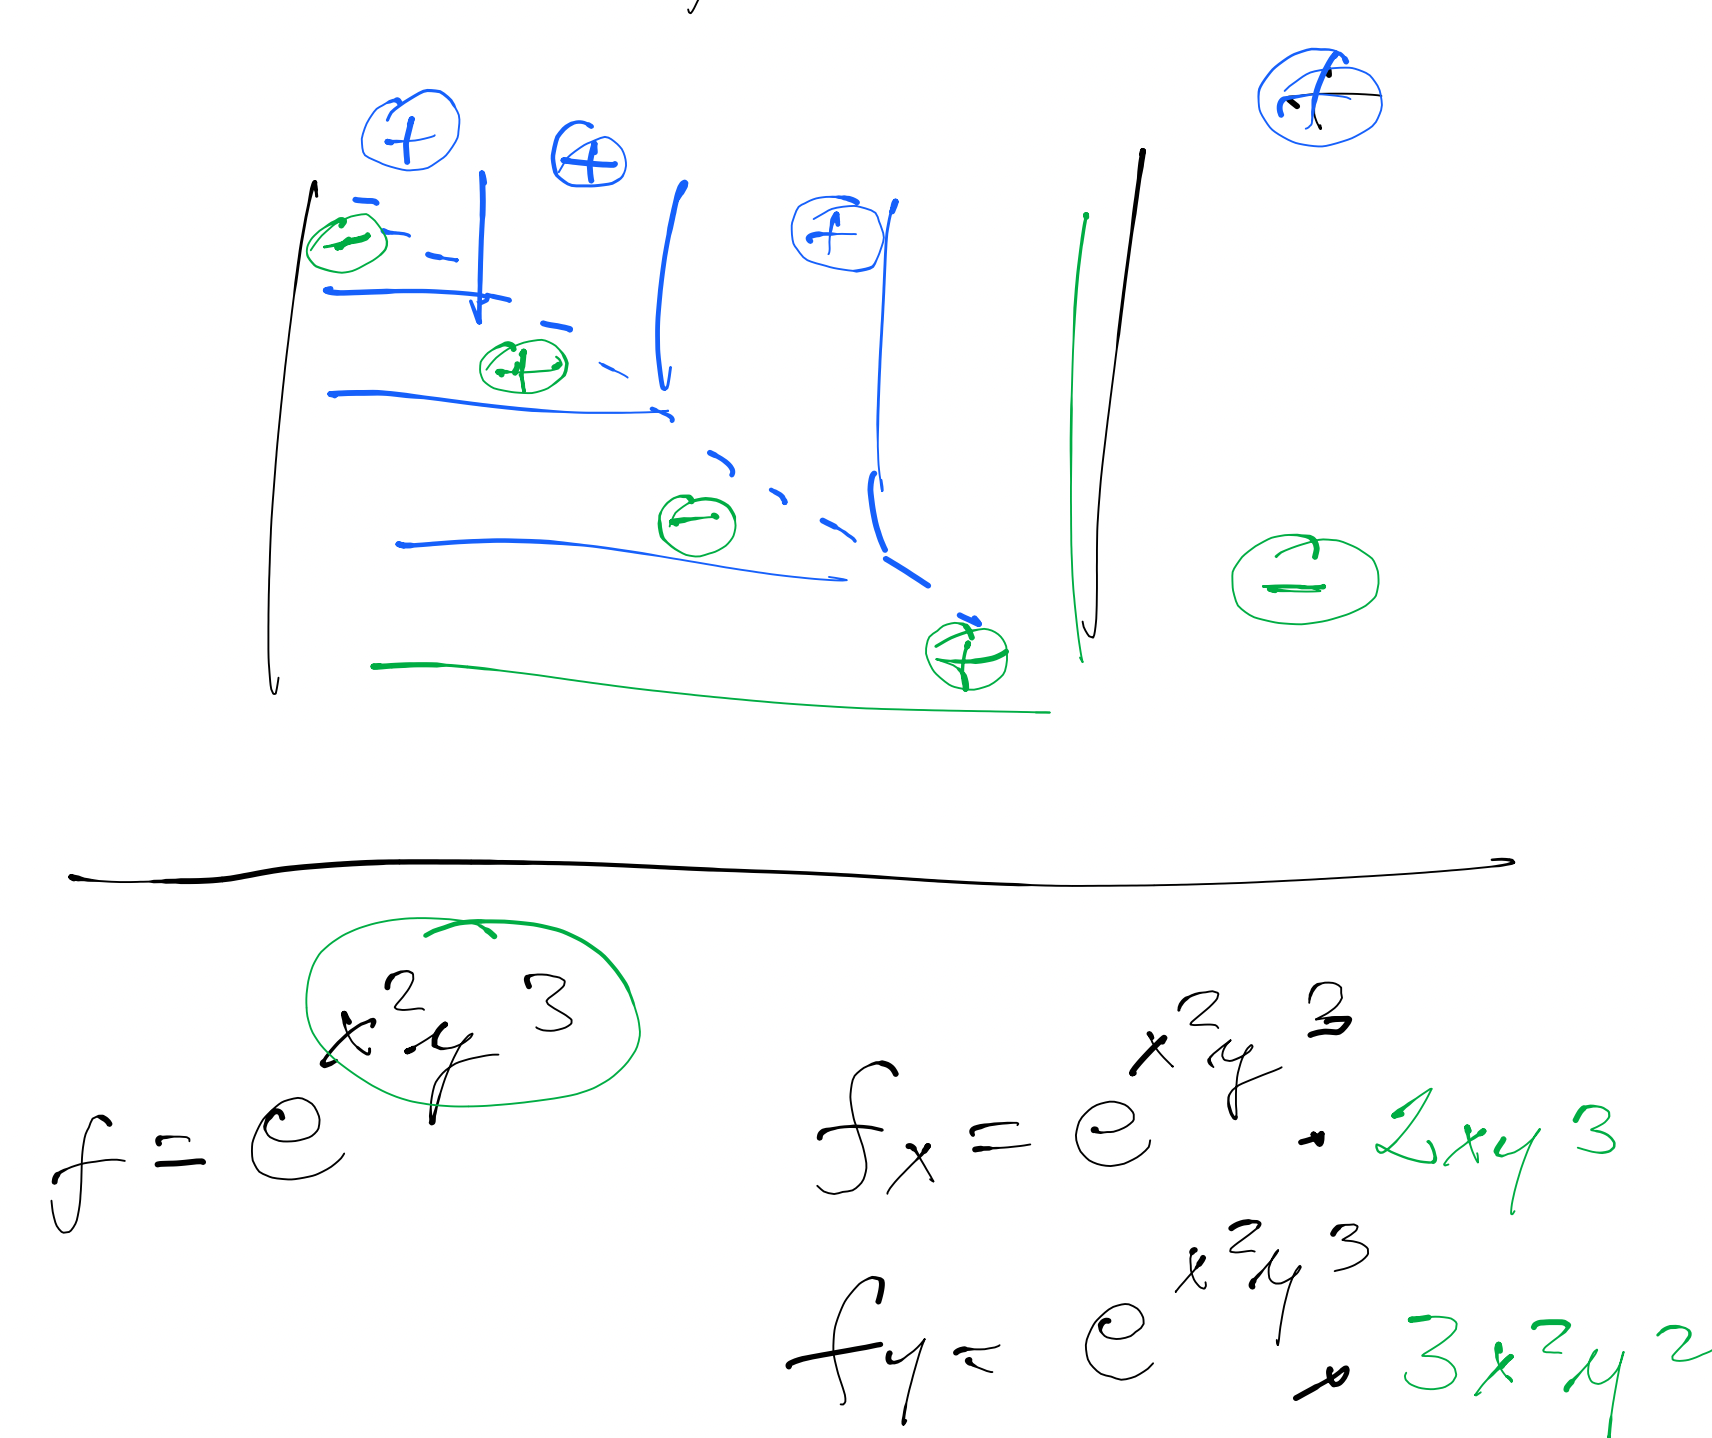 + + + +
- + - + -
f = e^{x^2y^3}
f_x = e^{x^2y^3} · 2xy^3
f_y = e^{x^2y^3} · 3x^2y^2